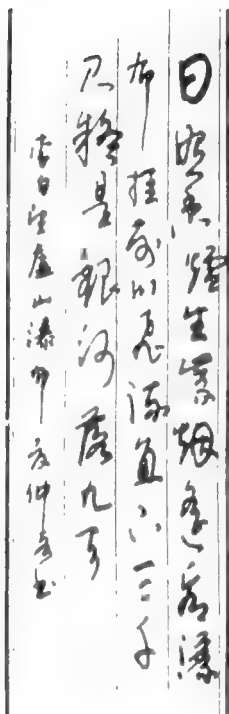 日照香爐生紫烟遥看瀑
布挂前川飛流直下三千
尺疑是銀河落九天
李白望廬山瀑布 仲书